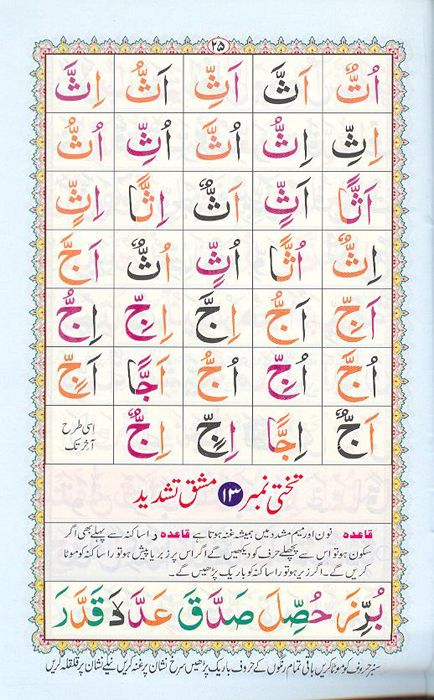 ۲۵
اُتٌّ اَثَّ اَثِّ اَثُّ اِثَّ
اِثِّ اِثُّ اُثَّ اُثِّ اُثُّ
اَثًّا اَثٍّ اَثٌّ اِثًّا اِثٍّ
اِثٌّ اُثًّا اُثٍّ اُثٌّ اَجَّ
اَجِّ اَجُّ اِجَّ اِجِّ اِجُّ
اُجَّ اُجِّ اُجُّ اَجًّا اَجٍّ
اَجٌّ اِجًّا اِجٍّ اِجٌّ اسی طرح
آخر تک
تختی نمبر ۱۳ مشق تشدید
قاعدہ نون اور میم مشدد میں ہمیشہ غنہ ہوتا ہے قاعدہ را ساکنہ سے پہلے بھی اگر
سکون ہو تو اس سے پچھلے حرف کو دیکھیں گے اگر اس پر زبر یا پیش ہو تو را ساکنہ کو موٹا
کریں گے۔ اگر زیر ہو تو را ساکنہ کو باریک پڑھیں گے۔
حُصِّلَ صَدَّقَ قَدَّرَ
سبز حروف کو موٹا کریں باقی تمام رنگوں کے حروف باریک پڑھیں سرخ نشان پر غنہ کریں نیلے نشان پر قلقلہ کریں